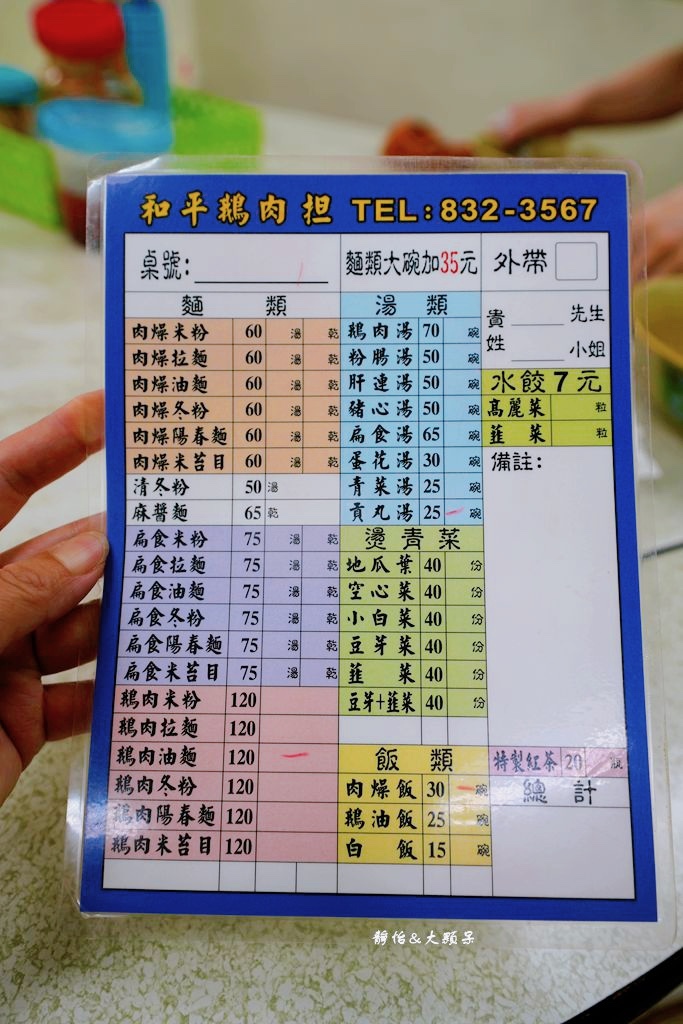 和平鵝肉担 TEL:832-3567
桌號:
麵類大碗加35元
外帶
貴姓 先生 小姐
麵 類
肉燥米粉 60 湯 乾
肉燥拉麵 60 湯 乾
肉燥油麵 60 湯 乾
肉燥冬粉 60 湯 乾
肉燥陽春麵 60 湯 乾
肉燥米苔目 60 湯 乾
清冬粉 50 湯
麻醬麵 65 乾
扁食米粉 75 湯 乾
扁食拉麵 75 湯 乾
扁食油麵 75 湯 乾
扁食冬粉 75 湯 乾
扁食陽春麵 75 湯 乾
扁食米苔目 75 湯 乾
鵝肉米粉 120
鵝肉拉麵 120
鵝肉油麵 120
鵝肉冬粉 120
鵝肉陽春麵 120
鵝肉米苔目 120
湯 類
鵝肉湯 70 碗
粉腸湯 50 碗
肝連湯 50 碗
豬心湯 50 碗
扁食湯 65 碗
蛋花湯 30 碗
青菜湯 25 碗
貢丸湯 25 碗
燙青菜
地瓜葉 40 份
空心菜 40 份
小白菜 40 份
豆芽菜 40 份
韮 菜 40 份
豆芽+韮菜 40 份
飯 類
肉燥飯 30 碗
鵝油飯 25 碗
白 飯 15 碗
水餃7元
高麗菜 粒
韮 菜 粒
備註:
特製紅茶 20 瓶
總 計
靜怡&大顆呆